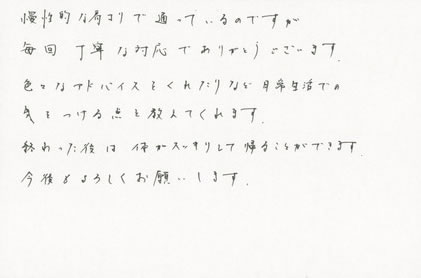 慢性的な肩コリで通っているのですが
毎回丁寧な対応でありがとうございます.
色々なアドバイスをくれたりなど日常生活での
気をつける点を教えてくれます.
終わった後は体がスッキリして帰ることができます.
今後もよろしくお願いします.